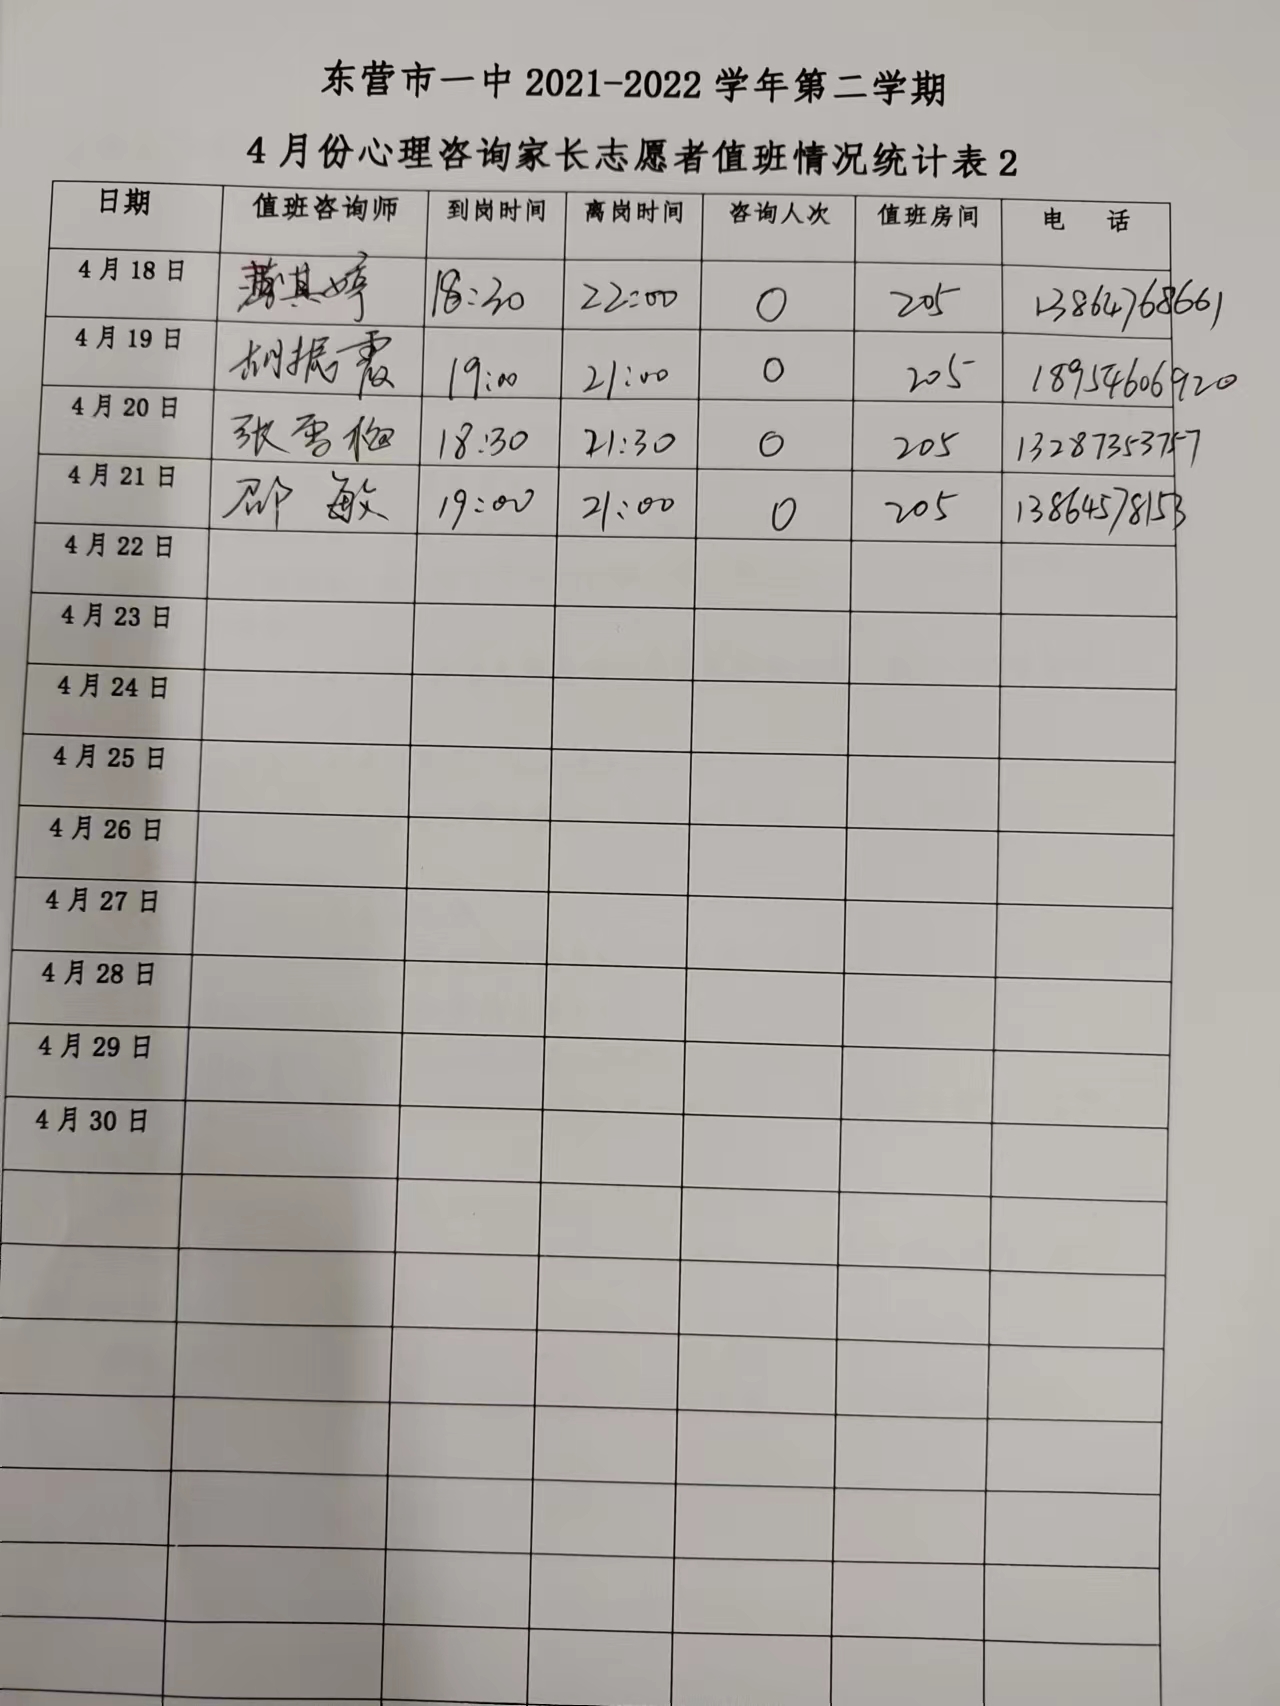 东营市一中 2021-2022 学年第二学期
4 月份心理咨询家长志愿者值班情况统计表 2
日期 值班咨询师 到岗时间 离岗时间 咨询人次 值班房间 电 话
4 月 18 日 其婷 18:30 22:00 0 205 13864768661
4 月 19 日 胡振霞 19:00 21:00 0 205 18954606920
4 月 20 日 张雪梅 18:30 21:30 0 205 13287353757
4 月 21 日 邵敏 19:00 21:00 0 205 13864578153
4 月 22 日
4 月 23 日
4 月 24 日
4 月 25 日
4 月 26 日
4 月 27 日
4 月 28 日
4 月 29 日
4 月 30 日